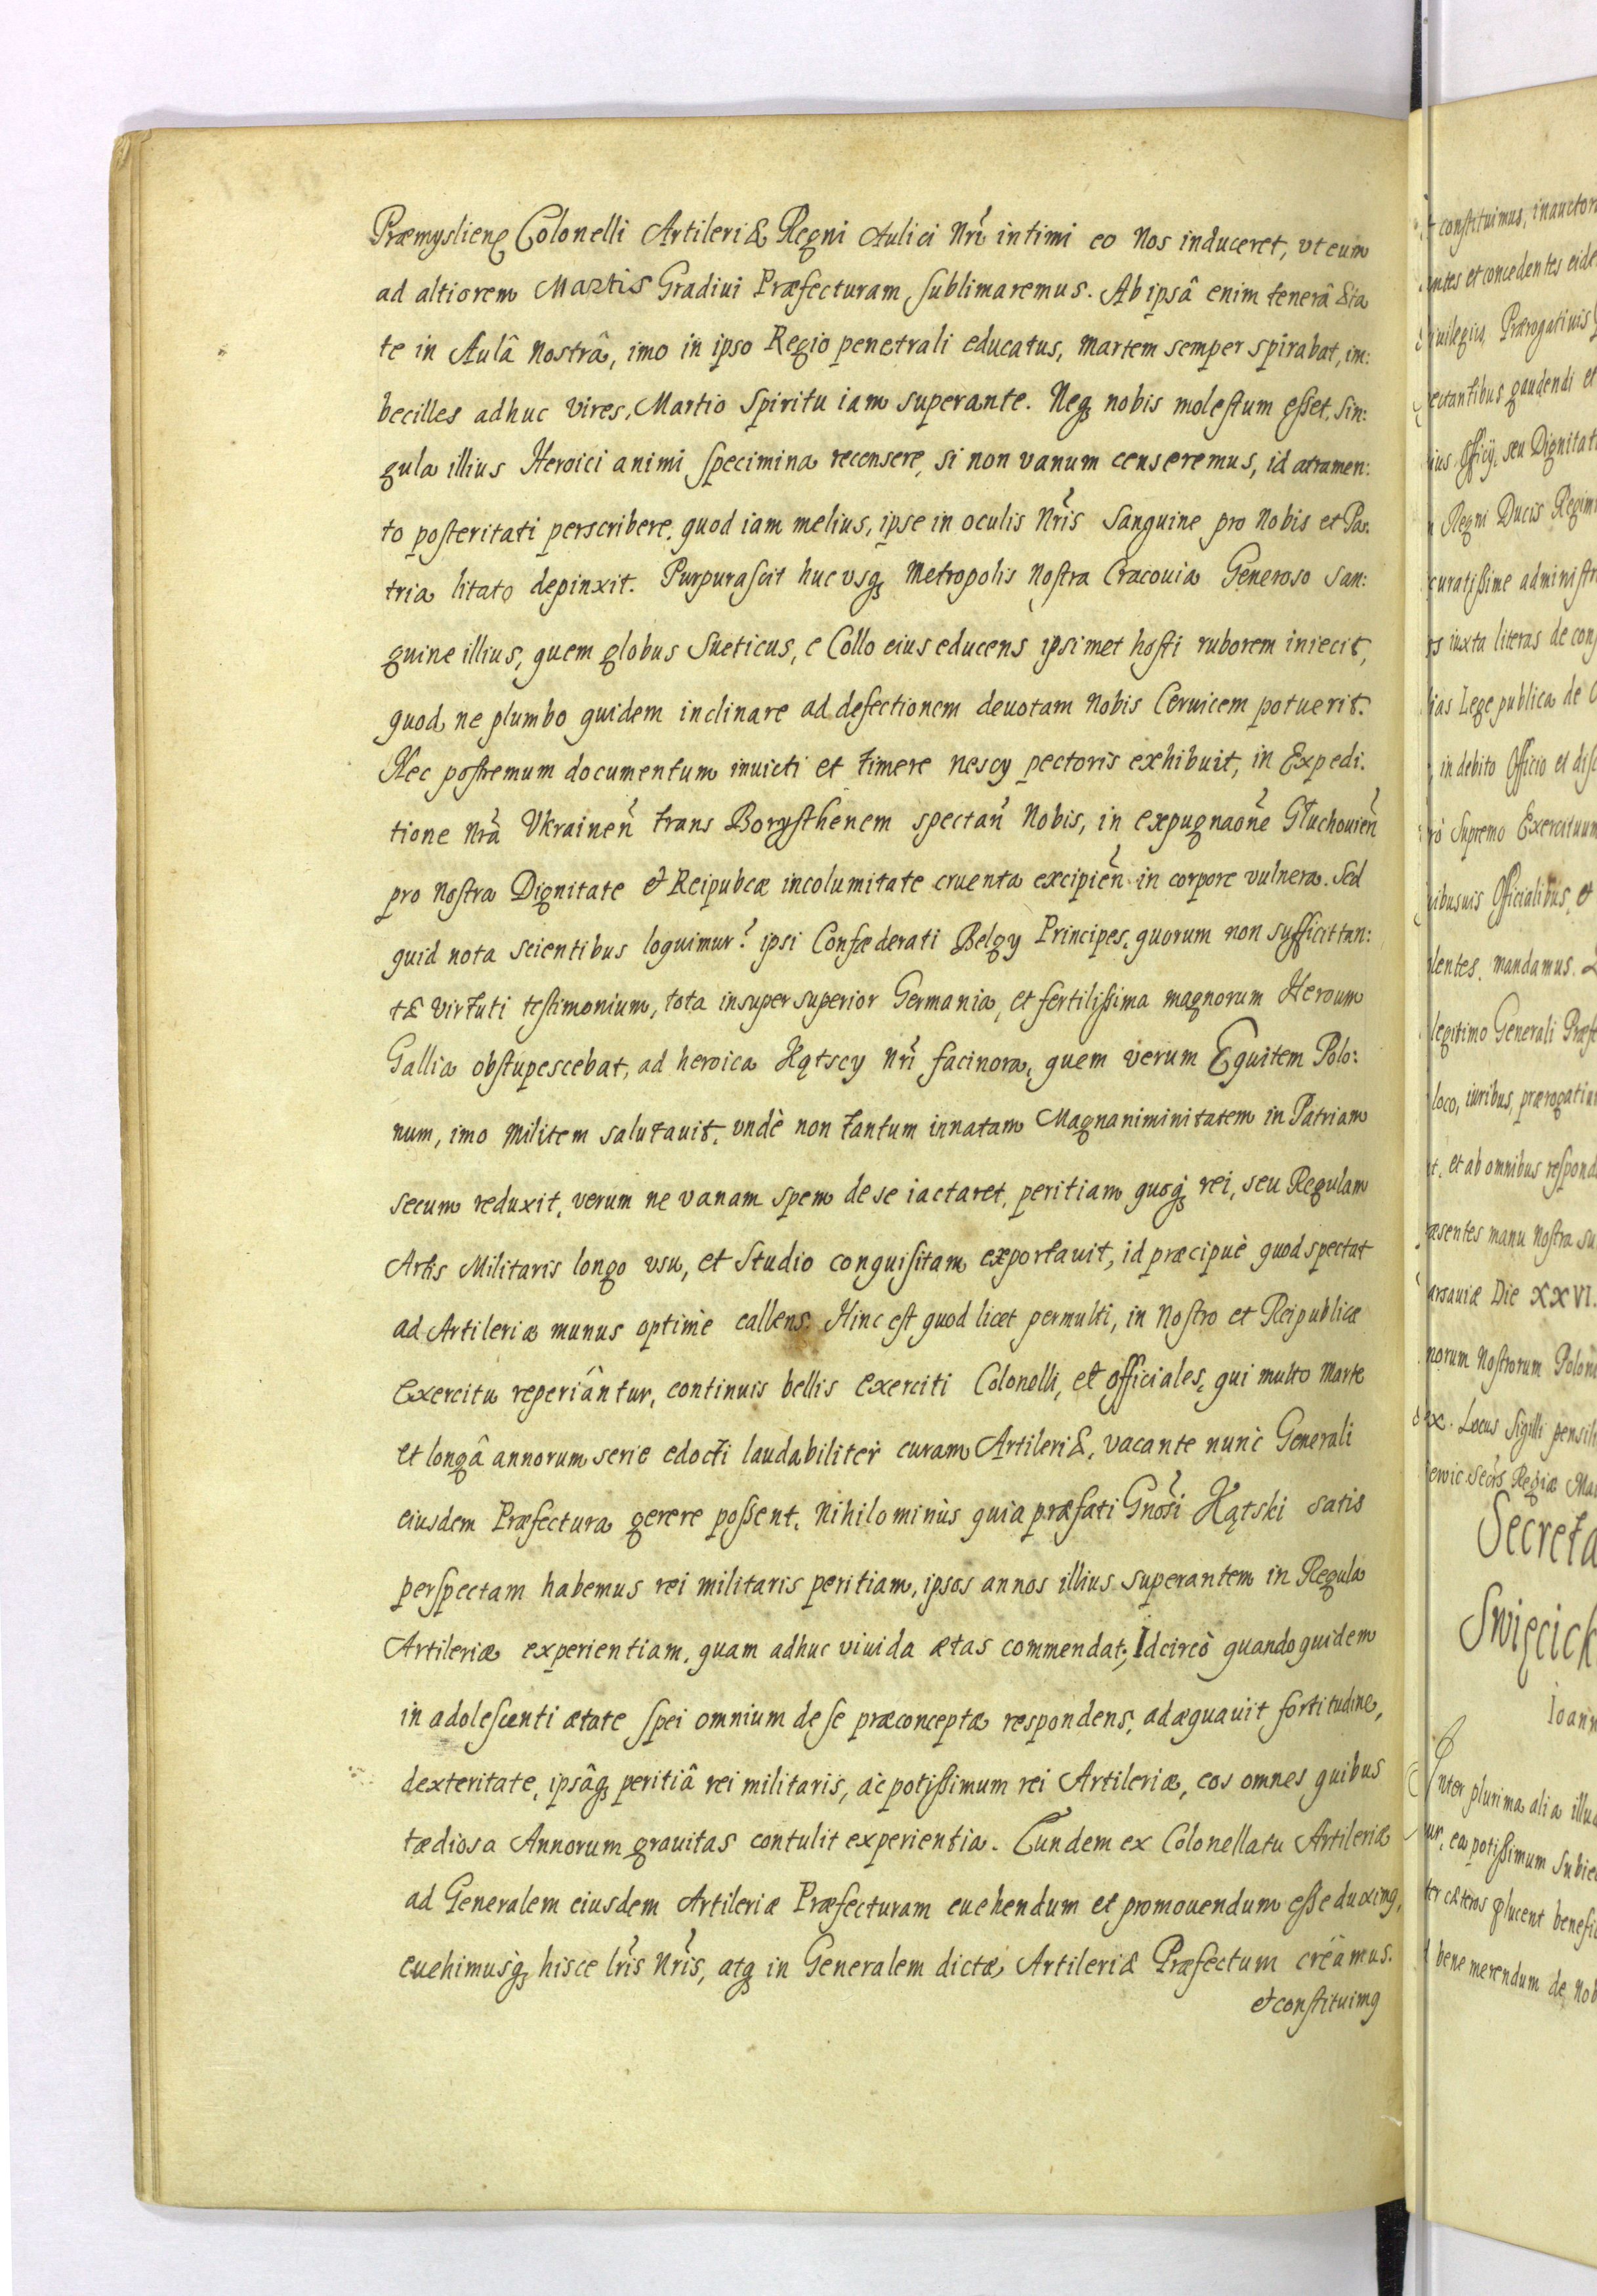 Præmyslien Colonelli Artileriæ Regni Aulici Nri intimi eo Nos induceret, vt eum
ad altiorem Martis Gradiui Præfecturam sublimaremus. Ab ipsâ enim tenerâ æta
te in Aulâ Nostrâ, imo in ipso Regio penetrali educatus, Martem semper spirabat, im:
becilles adhuc vires, Martio Spiritu iam superante. Neq nobis molestum esset, sin:
gula illius Heroici animi specimina recensere, si non vanum censeremus, id atramen:
to posteritati perscribere, quod iam melius, ipse in oculis Nris Sanguine pro Nobis et Pa:
tria litato depinxit. Purpurascit huc vsq Metropolis Nostra Cracouia Generoso San:
guine illius, quem globus Sueticus, e Collo eius educens ipsimet hosti ruborem iniecit,
quod ne plumbo quidem inclinare ad defectionem deuotam Nobis Ceruicem potuerit.
Nec postremum documentum inuicti et timere nescy pectoris exhibuit, in Expedi.
tione Nra Vkrainen trans Borysthenem spectan Nobis, in expugnaone Głuchouien
pro Nostra Dignitate et Reipubcæ incolumitate cruenta excipien in corpore vulnera. Sed
quid nota scientibus loquimur? ipsi Confæderati Belgy Principes, quorum non sufficit tan:
tæ Virtuti testimonium, tota insuper superior Germania, et fertilissima magnorum Heroum
Gallia obstupescebat, ad heroica Kątscy Nri facinora, quem verum Equitem Polo:
num, imo Militem salutauit, vndè non tantum innatam Magnaniminitatem in Patriam
secum reduxit, verum ne vanam spem de se iactaret, peritiam quoq rei, seu Regulam
Artis Militaris longo vsu, et Studio conquisitam exportauit, id præcipuè quod spectat
ad Artileriæ munus optimè callens. Hinc est quod licet permulti, in Nostro et Reipublicæ
Exercitu reperiantur, continuis bellis exerciti Colonelli, et officiales, qui multo Marte
et longâ annorum serie edocti laudabiliter curam Artileriæ, vacante nunc Generali
eiusdem Præfectura gerere possent, Nihilominùs quia præfati Gnosi Kątski satis
perspectam habemus rei militaris peritiam, ipsos annos illius superantem in Regula
Artileriæ experientiam, quam adhuc viuida ætas commendat; Idcircò quandoquidem
in adolescenti ætate spei omnium de se præconceptæ respondens, adæquauit fortitudine,
dexteritate, ipsâq peritiâ rei militaris, ac potissimum rei Artileriæ, eos omnes quibus
tædiosa Annorum grauitas contulit experientia. Eundem ex Colonellatu Artileriæ
ad Generalem eiusdem Artileriæ Præfecturam euehendum et promouendum esse duximq,
euehimusq hisce lris Nris, atq in Generalem dictæ Artileriæ Præfectum creamus.
et constituimq
constituimus, inauctor
ntes et concedentes eide
iuilegiis, Prærogatiuis
ectantibus gaudendi et
ius officij, seu Dignitat
Regni Ducis Regim
curatissime administr
iuxta literas de con
ias Lege publica de
in debito Officio et disc
rò Supremo Exercituum
ibusuis Officialibus, et
lentes, mandamus.
legitimo Generali Præf
loco, iuribus, prærogatiu
t, et ab omnibus respond
æsentes manu Nostra su
arsauiæ Die XXVI.
norum Nostrorum Poloni
ex. Locus Sigilli pensil
ewic Secrs Regiæ Ma
Secreta
Swięcick
Ioann
Inter plurima alia illu
ur, ea potissimum Subie
ter cæteros plucent benefi
bene merendum de Nob